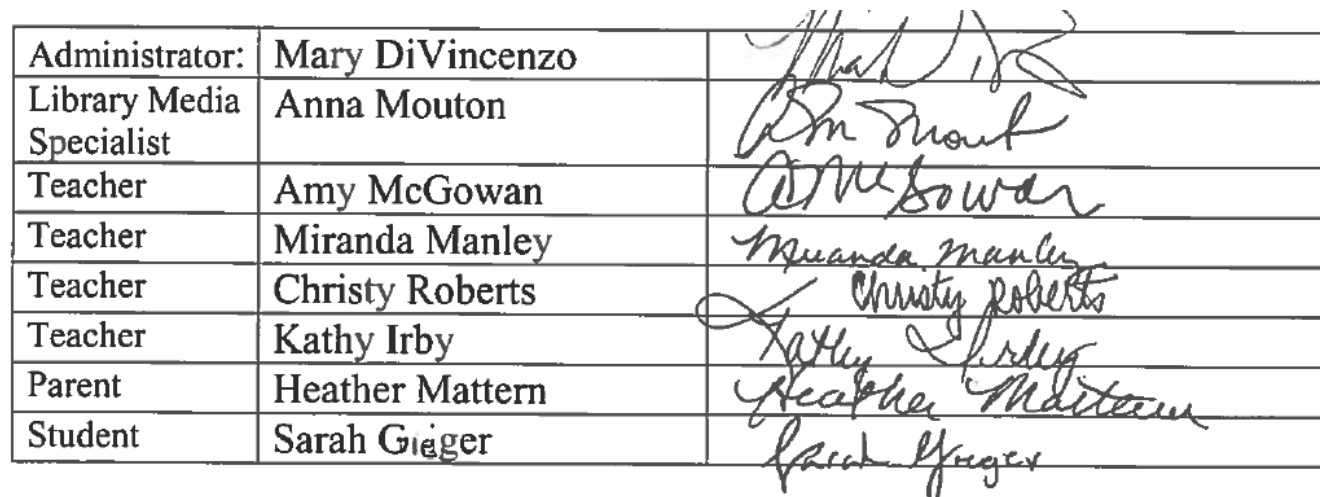 Administrator: Mary DiVincenzo
Library Media Specialist Anna Mouton
Teacher Amy McGowan A McGowan
Teacher Miranda Manley Miranda Manley
Teacher Christy Roberts Christy Roberts
Teacher Kathy Irby Kathy Irby
Parent Heather Mattern Heather Mattern
Student Sarah Gieger Sarah Gieger